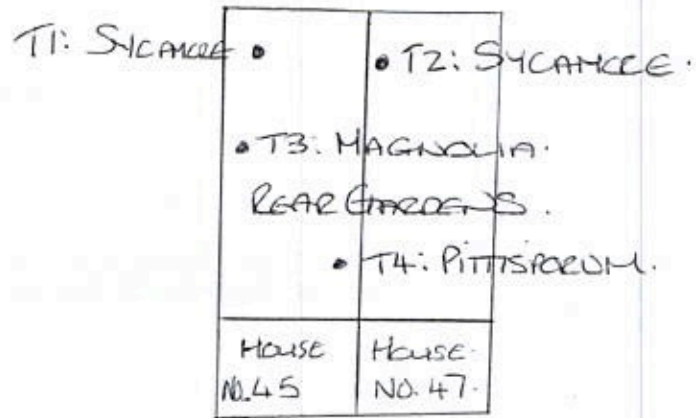 T1: SYCAMORE
T2: SYCAMORE.
T3: MAGNOLIA.
REAR GARDENS.
T4: PITTISPORUM.
HOUSE
NO.45
HOUSE
NO. 47.